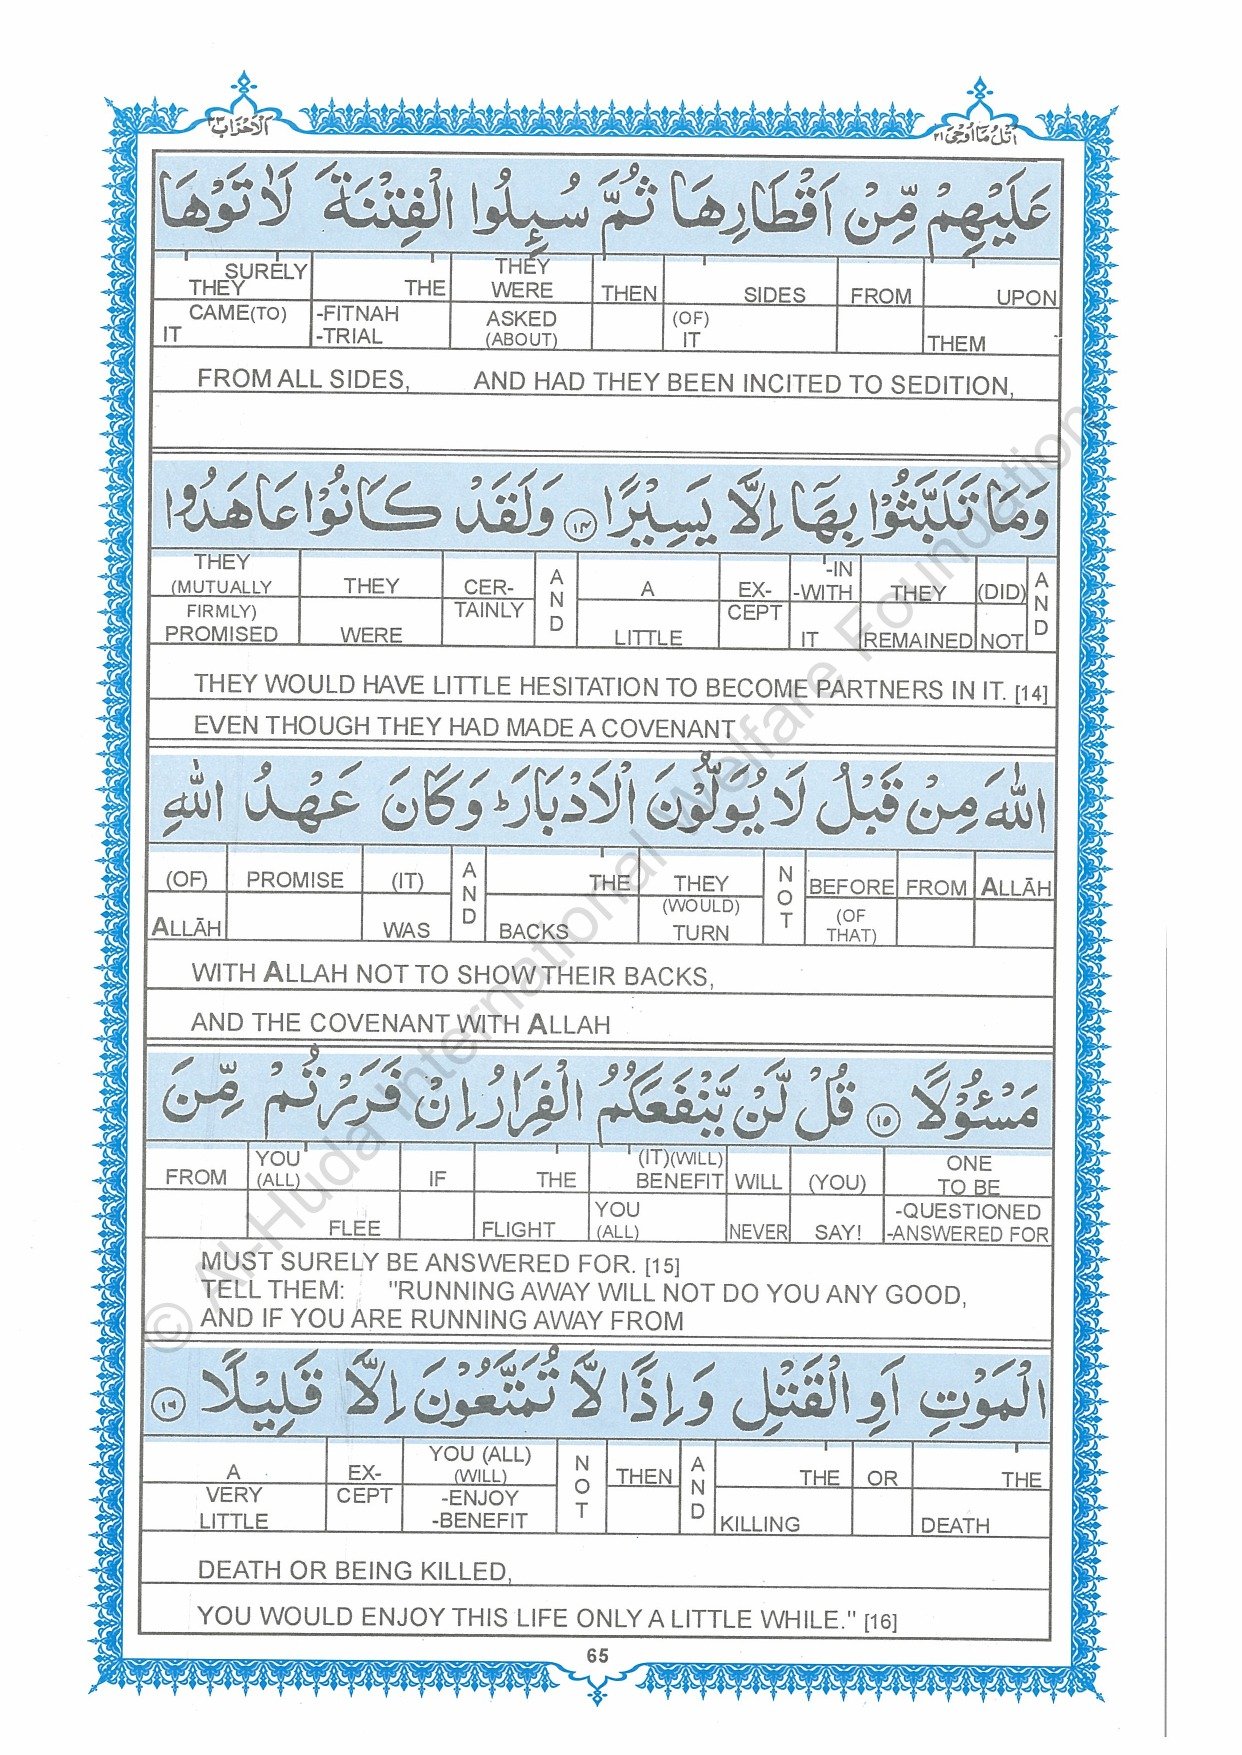 اَلْاَحْزَاب ٣٣
اُتْلُ مَا اُوْحِيَ ٢١
عَلَيْهِمْ مِّنْ اَقْطَارِهَا ثُمَّ سُىِٕلُوا الْفِتْنَةَ لَاٰتَوْهَا
SURELY THEY CAME(TO) IT | THE -FITNAH -TRIAL | THEY WERE ASKED (ABOUT) | THEN | SIDES (OF) IT | FROM | UPON THEM
FROM ALL SIDES, AND HAD THEY BEEN INCITED TO SEDITION,
وَمَا تَلَبَّثُوْا بِهَآ اِلَّا يَسِيْرًا ۝١٤ وَلَقَدْ كَانُوْا عَاهَدُوا
THEY (MUTUALLY FIRMLY) PROMISED | THEY WERE | CER- TAINLY | AND | A LITTLE | EX- CEPT | -IN -WITH IT | THEY REMAINED | (DID) NOT | AND
THEY WOULD HAVE LITTLE HESITATION TO BECOME PARTNERS IN IT. [14]
EVEN THOUGH THEY HAD MADE A COVENANT
اللّٰهَ مِنْ قَبْلُ لَا يُوَلُّوْنَ الْاَدْبَارَ ؕ وَكَانَ عَهْدُ اللّٰهِ
(OF) ALLĀH | PROMISE | (IT) WAS | AND | THE BACKS | THEY (WOULD) TURN | NOT | BEFORE (OF THAT) | FROM | ALLĀH
WITH ALLAH NOT TO SHOW THEIR BACKS,
AND THE COVENANT WITH ALLAH
مَسْـُٔوْلًا ۝١٥ قُلْ لَّنْ يَّنْفَعَكُمُ الْفِرَارُ اِنْ فَرَرْتُمْ مِّنَ
FROM | YOU (ALL) FLEE | IF | THE FLIGHT | (IT)(WILL) BENEFIT YOU (ALL) | WILL NEVER | (YOU) SAY! | ONE TO BE -QUESTIONED -ANSWERED FOR
MUST SURELY BE ANSWERED FOR. [15]
TELL THEM: "RUNNING AWAY WILL NOT DO YOU ANY GOOD,
AND IF YOU ARE RUNNING AWAY FROM
الْمَوْتِ اَوِ الْقَتْلِ وَاِذًا لَّا تُمَتَّعُوْنَ اِلَّا قَلِيْلًا ۝١٦
A VERY LITTLE | EX- CEPT | YOU (ALL) (WILL) -ENJOY -BENEFIT | NOT | THEN | AND | THE KILLING | OR | THE DEATH
DEATH OR BEING KILLED,
YOU WOULD ENJOY THIS LIFE ONLY A LITTLE WHILE." [16]
65
© Al-Huda International Welfare Foundation